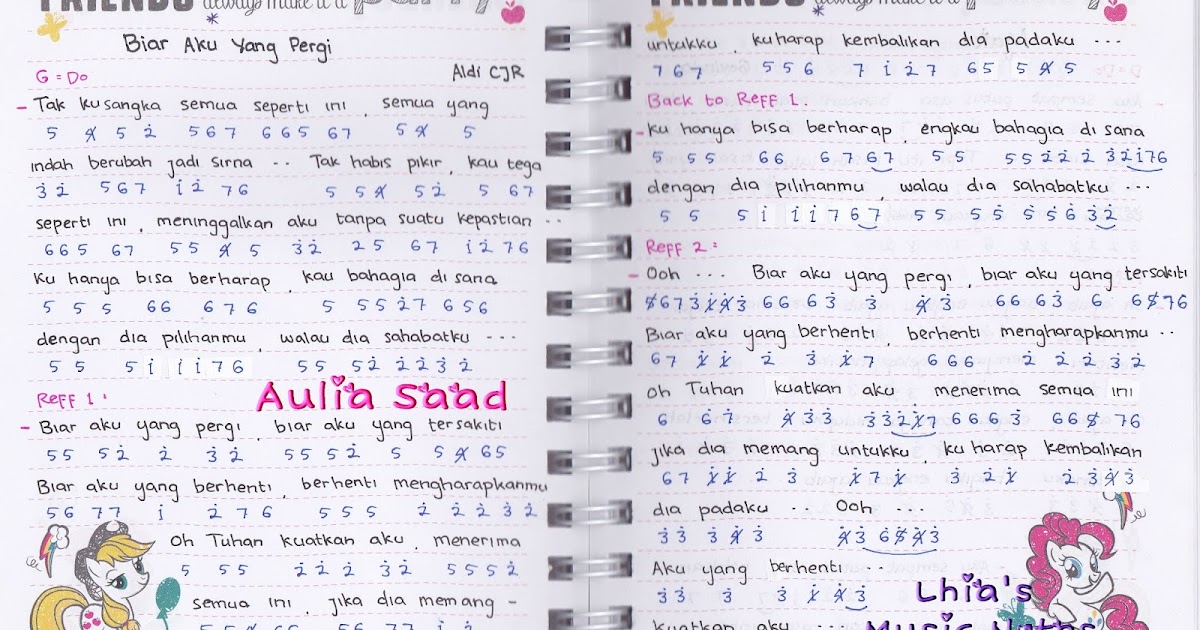 FRIENDS always make it a party
Biar Aku Yang Pergi
G = Do
Aldi CJR
- Tak ku sangka semua seperti ini , semua yang
5 4̸ 5 2̇ 5 6 7 6 6 5 6 7 5 4̸ 5
indah berubah jadi sirna .. Tak habis pikir , kau tega
3̇ 2̇ 5 6 7 1̇ 2̇ 7 6 5 5 4̸ 5 2̇ 5 6 7
seperti ini , meninggalkan aku tanpa suatu kepastian ..
6 6 5 6 7 5 5 4̸ 5 3̇ 2̇ 2 5 6 7 1̇ 2̇ 7 6
Ku hanya bisa berharap , kau bahagia di sana
5 5 5 6 6 6 7 6 5 5 5 2̇ 7 6 5 6
dengan dia pilihanmu , walau dia sahabatku ...
5 5 5 1̇ 1̇ 1̇ 7 6 5 5 5 2̇ 2̇ 2̇ 3̇ 2̇
Reff 1 :
Aulia Saad
- Biar aku yang pergi , biar aku yang tersakiti
5 5 5 2̇ 2̇ 3̇ 2̇ 5 5 5 2̇ 5 5 4̸ 6 5
Biar aku yang berhenti , berhenti mengharapkanmu
5 6 7 7 1̇ 2̇ 7 6 5 5 5 2̇ 2̇ 2̇ 3̇ 2̇
Oh Tuhan kuatkan aku , menerima
5 5 5 2̇ 2̇ 2̇ 3̇ 2̇ 5 5 5 2̇
semua ini , jika dia memang -
untukku , kuharap kembalikan dia padaku ...
7 6 7 5 5 6 7 1̇ 2̇ 7 6 5 5 4̸ 5
Back to Reff 1 .
- Ku hanya bisa berharap , engkau bahagia di sana
5 5 5 6 6 6 7 6 7 5 5 5 5 2̇ 2̇ 2̇ 3̇ 2̇ 1̇ 7 6
dengan dia pilihanmu , walau dia sahabatku ...
5 5 5 1̇ 1̇ 1̇ 7 6 7 5 5 5 5̇ 5̇ 5̇ 6̇ 3̇ 2̇
Reff 2 :
- Ooh ... Biar aku yang pergi , biar aku yang tersakiti
5̸ 6 7 3̇ 1̸̇ 4̸̇ 3̇ 6 6 6 3̇ 3̇ 4̸̇ 3̇ 6 6 6 3̇ 6 6 5̸ 7 6
Biar aku yang berhenti , berhenti mengharapkanmu ..
6 7 1̸̇ 1̸̇ 2̇ 3̇ 1̸̇ 7 6 6 6 2̇ 2̇ 2̇ 3̇ 2̇
Oh Tuhan kuatkan aku menerima semua ini
6 6 7 4̸̇ 3̇ 3̇ 3̇ 3̇ 2̇ 1̸̇ 7 6 6 6 3̇ 6 6 5̸ 7 6
jika dia memang untukku , ku harap kembalikan
6 7 1̸̇ 1̸̇ 2̇ 3̇ 1̸̇ 7 1̸̇ 3̇ 2̇ 1̸̇ 2̇ 3̇ 4̸̇ 3̇
dia padaku .. Ooh ...
3̇ 3̇ 3̇ 4̸̇ 3̇ 4̸̇ 3̇ 6 5̸̇ 4̸̇ 3̇
Aku yang berhenti ..
3̇ 3̇ 3̇ 3̇ 1̸̇ 4̸̇ 3̇
Lhia's
Music Notes
kuatkan aku ...